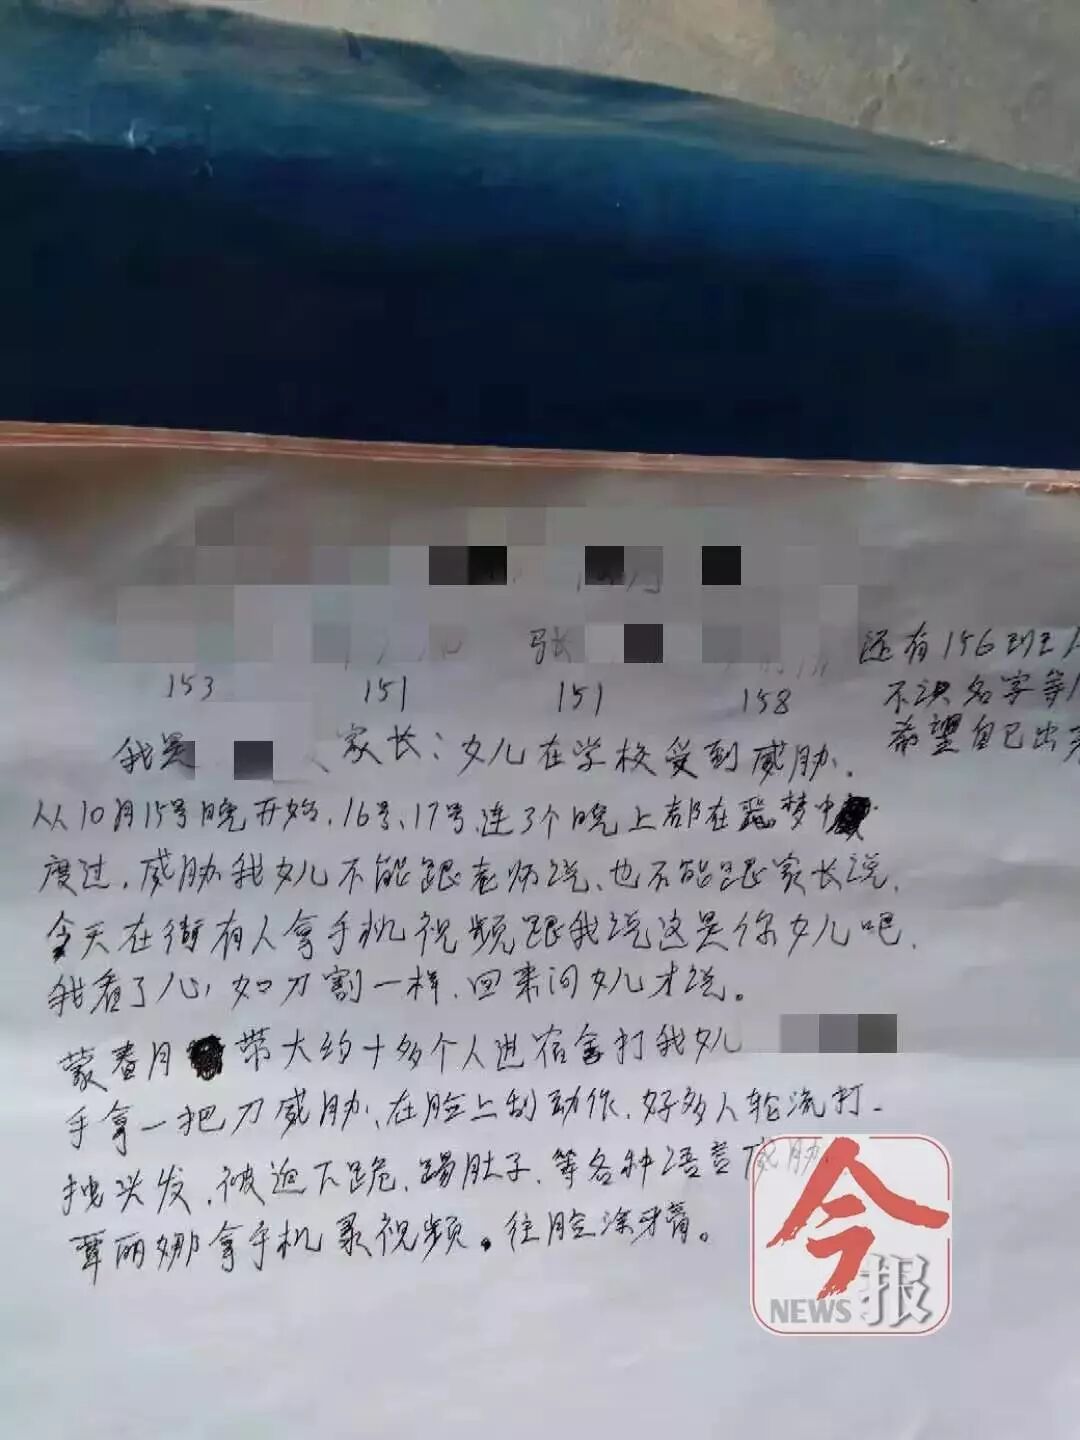 张
还有156班
153 151 151 158 不识名字等
我是 家长:女儿在学校受到威胁. 希望自己出
从10月15号晚开始,16号、17号,连3个晚上都在恶梦中
度过,威胁我女儿不能跟老师说、也不能跟家长说,
今天在街有人拿手机视频跟我说这是你女儿吧,
我看了心,如刀割一样,回来问女儿才说。
蒙春月 带大约十多个人进宿舍打我女儿
手拿一把刀威胁、在脸上刮动作,好多人轮流打-
拽头发,被迫下跪,踢肚子,等各种语言威胁
覃丽娜拿手机录视频。往脸涂牙膏。
今报
NEWS